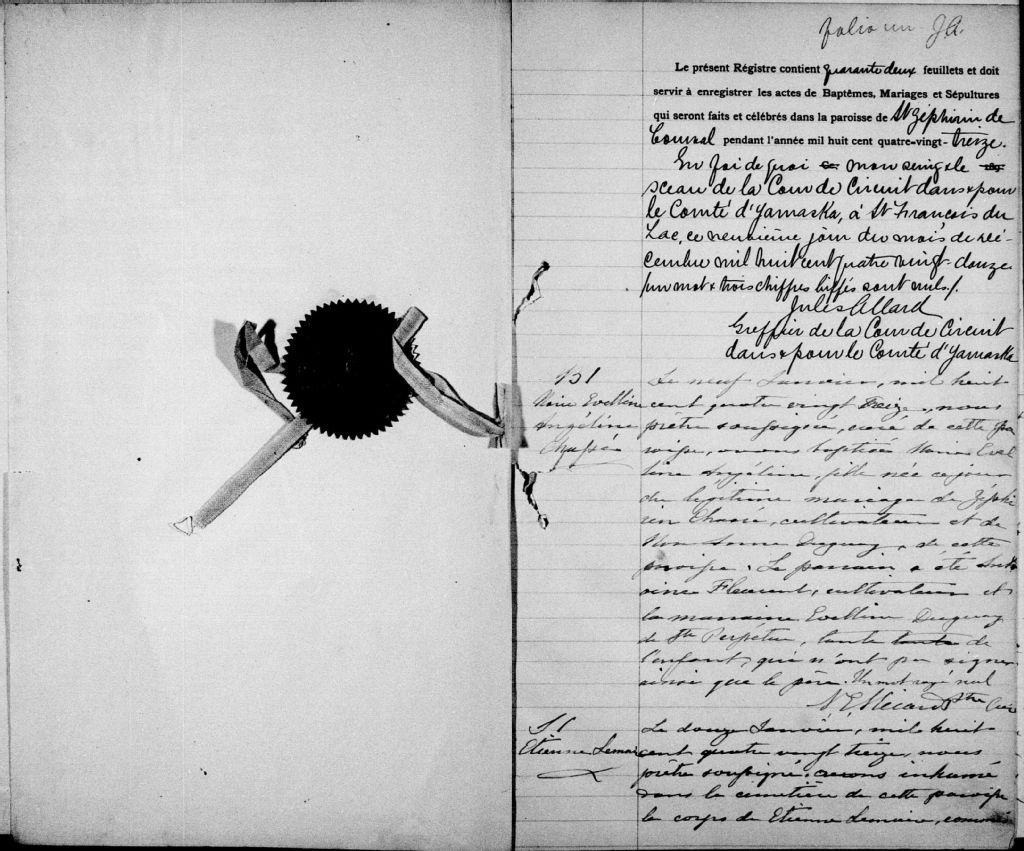 folio un J.A.
Le présent Régistre contient quarante deux feuillets et doit
servir à enregistrer les actes de Baptêmes, Mariages et Sépultures
qui seront faits et célébrés dans la paroisse de St Zéphirin de
Courval pendant l'année mil huit cent quatre-vingt-treize.
En foi de quoi mon seing & le
sceau de la Cour de Circuit dans & pour
le Comté d'Yamaska, à St François du
Lac, ce neuvième jour du mois de dé-
cembre mil huit cent quatre vingt-douze
/un mot & trois chiffres biffés sont nuls./
Jules Allard
Greffier de la Cour de Circuit
dans & pour le Comté d'Yamaska
B1
Marie Evelline
Angéline
Chassé
Le neuf Janvier, mil huit
cent quatre vingt treize, nous
prêtre soussigné, curé de cette pa
roisse, avons baptisé Marie Evel
line Angéline fille née ce jour
du légitime mariage de Zéphi
rin Chassé, cultivateur et de
Anne Duguay, de cette
paroisse. Le parrain a été
Fleurent, cultivateur et
la marraine Evelline Duguay
de Ste Perpétue, tante tante de
l'enfant, qui n'ont pu signer
ainsi que le père. Un mot rayé nul
Ptre Curé
S1
Etienne Lemaire
Le douze Janvier, mil huit
cent quatre vingt treize, nous
prêtre soussigné, avons inhumé
dans le cimetière de cette paroisse
le corps de Etienne Lemaire,